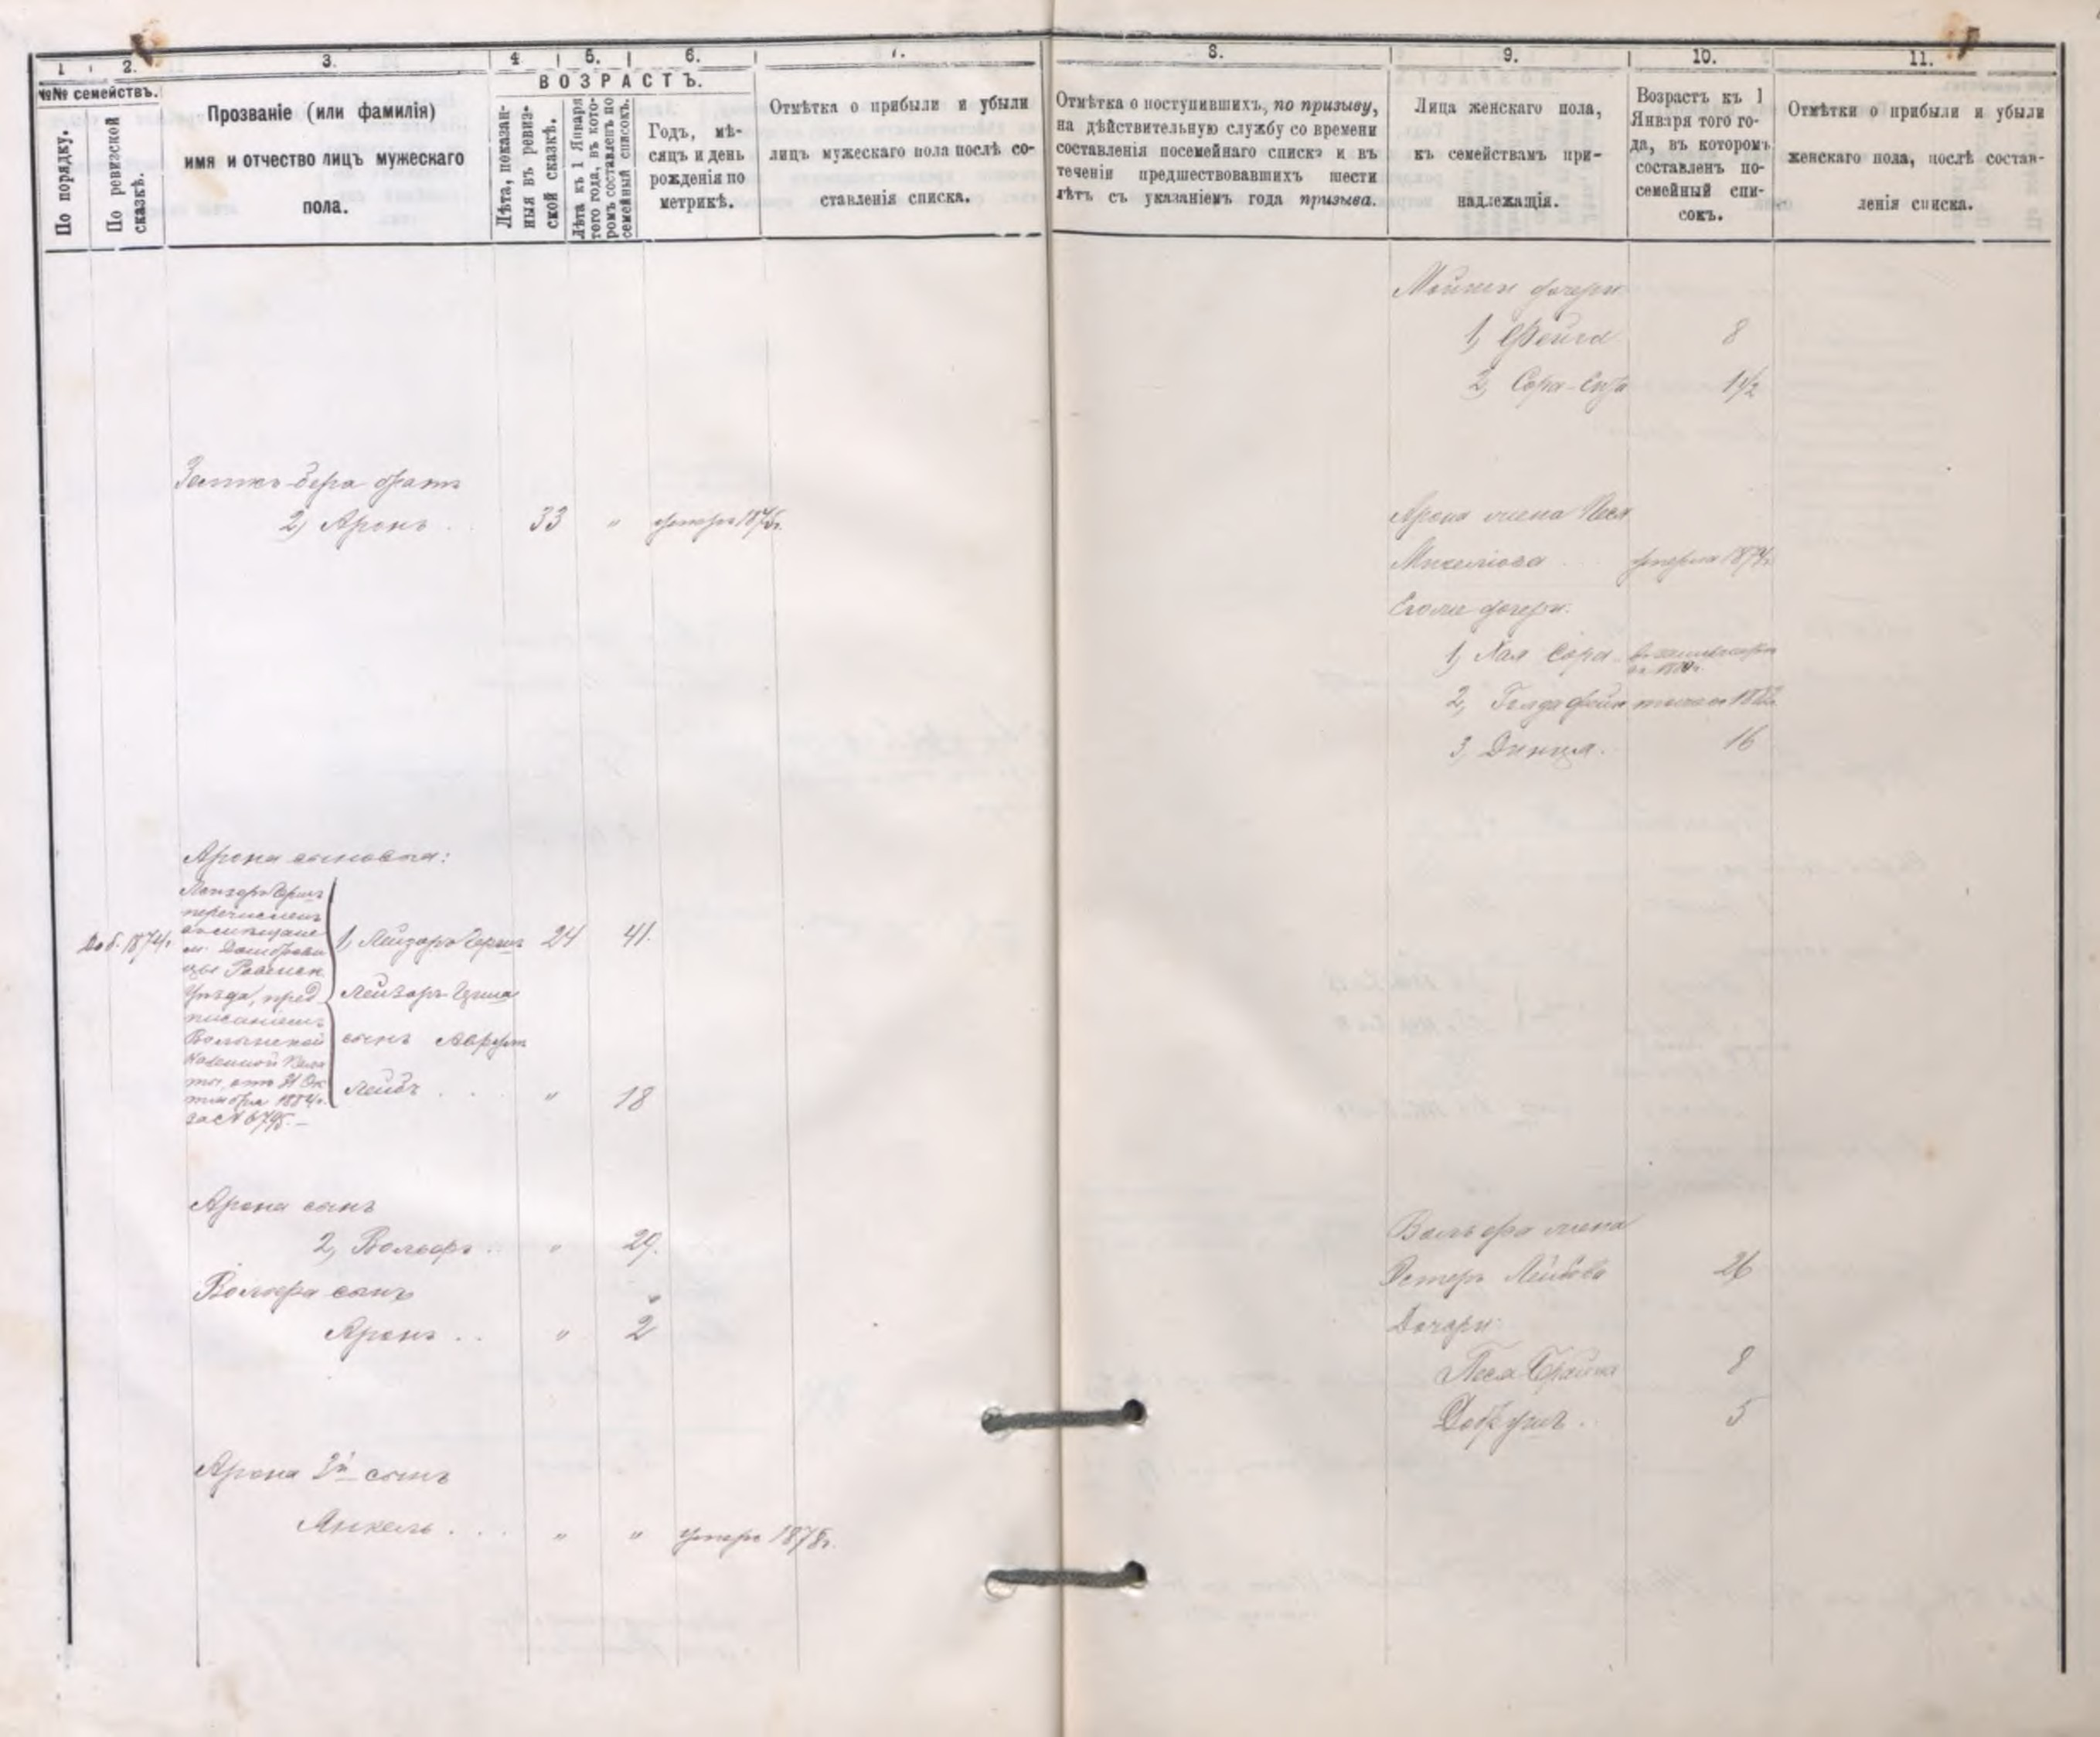 1
2.
3.
4
5.
6.
7.
8.
9.
10.
11.
№№ семействъ.
По порядку.
По ревизской
сказкѣ.
Прозваніе (или фамилія)
имя и отчество лицъ мужескаго
пола.
ВОЗРАСТЪ.
Лѣта, показан-
ныя въ ревиз-
ской сказкѣ.
Лѣта къ 1 Января
того года, въ кото-
ромъ составленъ по
семейный списокъ.
Годъ, мѣ-
сяцъ и день
рожденія по
метрикѣ.
Отмѣтка о прибыли и убыли
лицъ мужескаго пола послѣ со-
ставленія списка.
Отмѣтка о поступившихъ, по призыву,
на дѣйствительную службу со времени
составленія посемейнаго списка и въ
теченіи предшествовавшихъ шести
лѣтъ съ указаніемъ года призыва.
Лица женскаго пола,
къ семействамъ при-
надлежащія.
Возрастъ къ 1
Января того го-
да, въ которомъ
составленъ по-
семейный спи-
сокъ.
Отмѣтки о прибыли и убыли
женскаго пола, послѣ состав-
ленія списка.
дочери
1, Фейга 8
2, Сора- 1 1/2
бера братъ
2, Аронъ . . 33 " умеръ 1875г.
Арона жена Песя
умерла 1874г.
дочери:
1, Хая Сора
2, Голда
3, 16
Арона сыновья:
Лейзоръ Гершъ
перечисленъ
въ мѣщане
м. Домброви
цы Ровенск.
Уѣзда, пред
писаніемъ
Волынской
Казенной Пала
ты, отъ 31 Ок
тября 1884г.
за №6795.—
Доб. 1874г. 1, Лейзоръ Гершъ 24 41.
Лейзоръ Герша
сынъ Аврумъ
Лейбъ . . " 18
Арона сынъ
2, Вольфъ . " 29.
Вольфа сынъ
Аронъ . . " 2
Вольфа жена
Эстеръ Лейбова 26
Дочери:
Песя Брайна 8
5
Арона 3й сынъ
Янкель . . . " " умеръ 1878г.